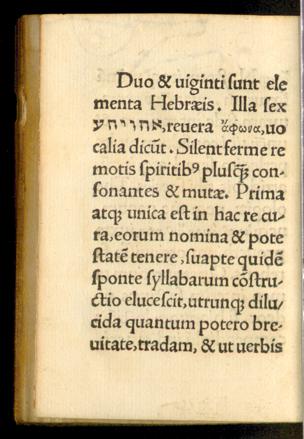 Duo & uiginti sunt ele
menta Hebræis. Illa sex
אהויחע, reuera ἄφωνα, uo
calia dicūt. Silent ferme re
motis spiritibꝰ plusq̃ con-
sonantes & mutæ. Prima
atqꝫ unica est in hac re cu-
ra, eorum nomina & pote
statē tenere, suapte quidē
sponte syllabarum cōstru-
ctio elucescit, utrunqꝫ dilu-
cida quantum potero bre-
uitate, tradam, & ut uerbis